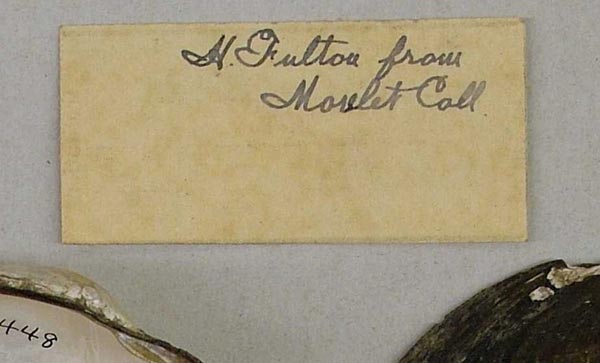 H. Fulton from
Morelet Coll
448